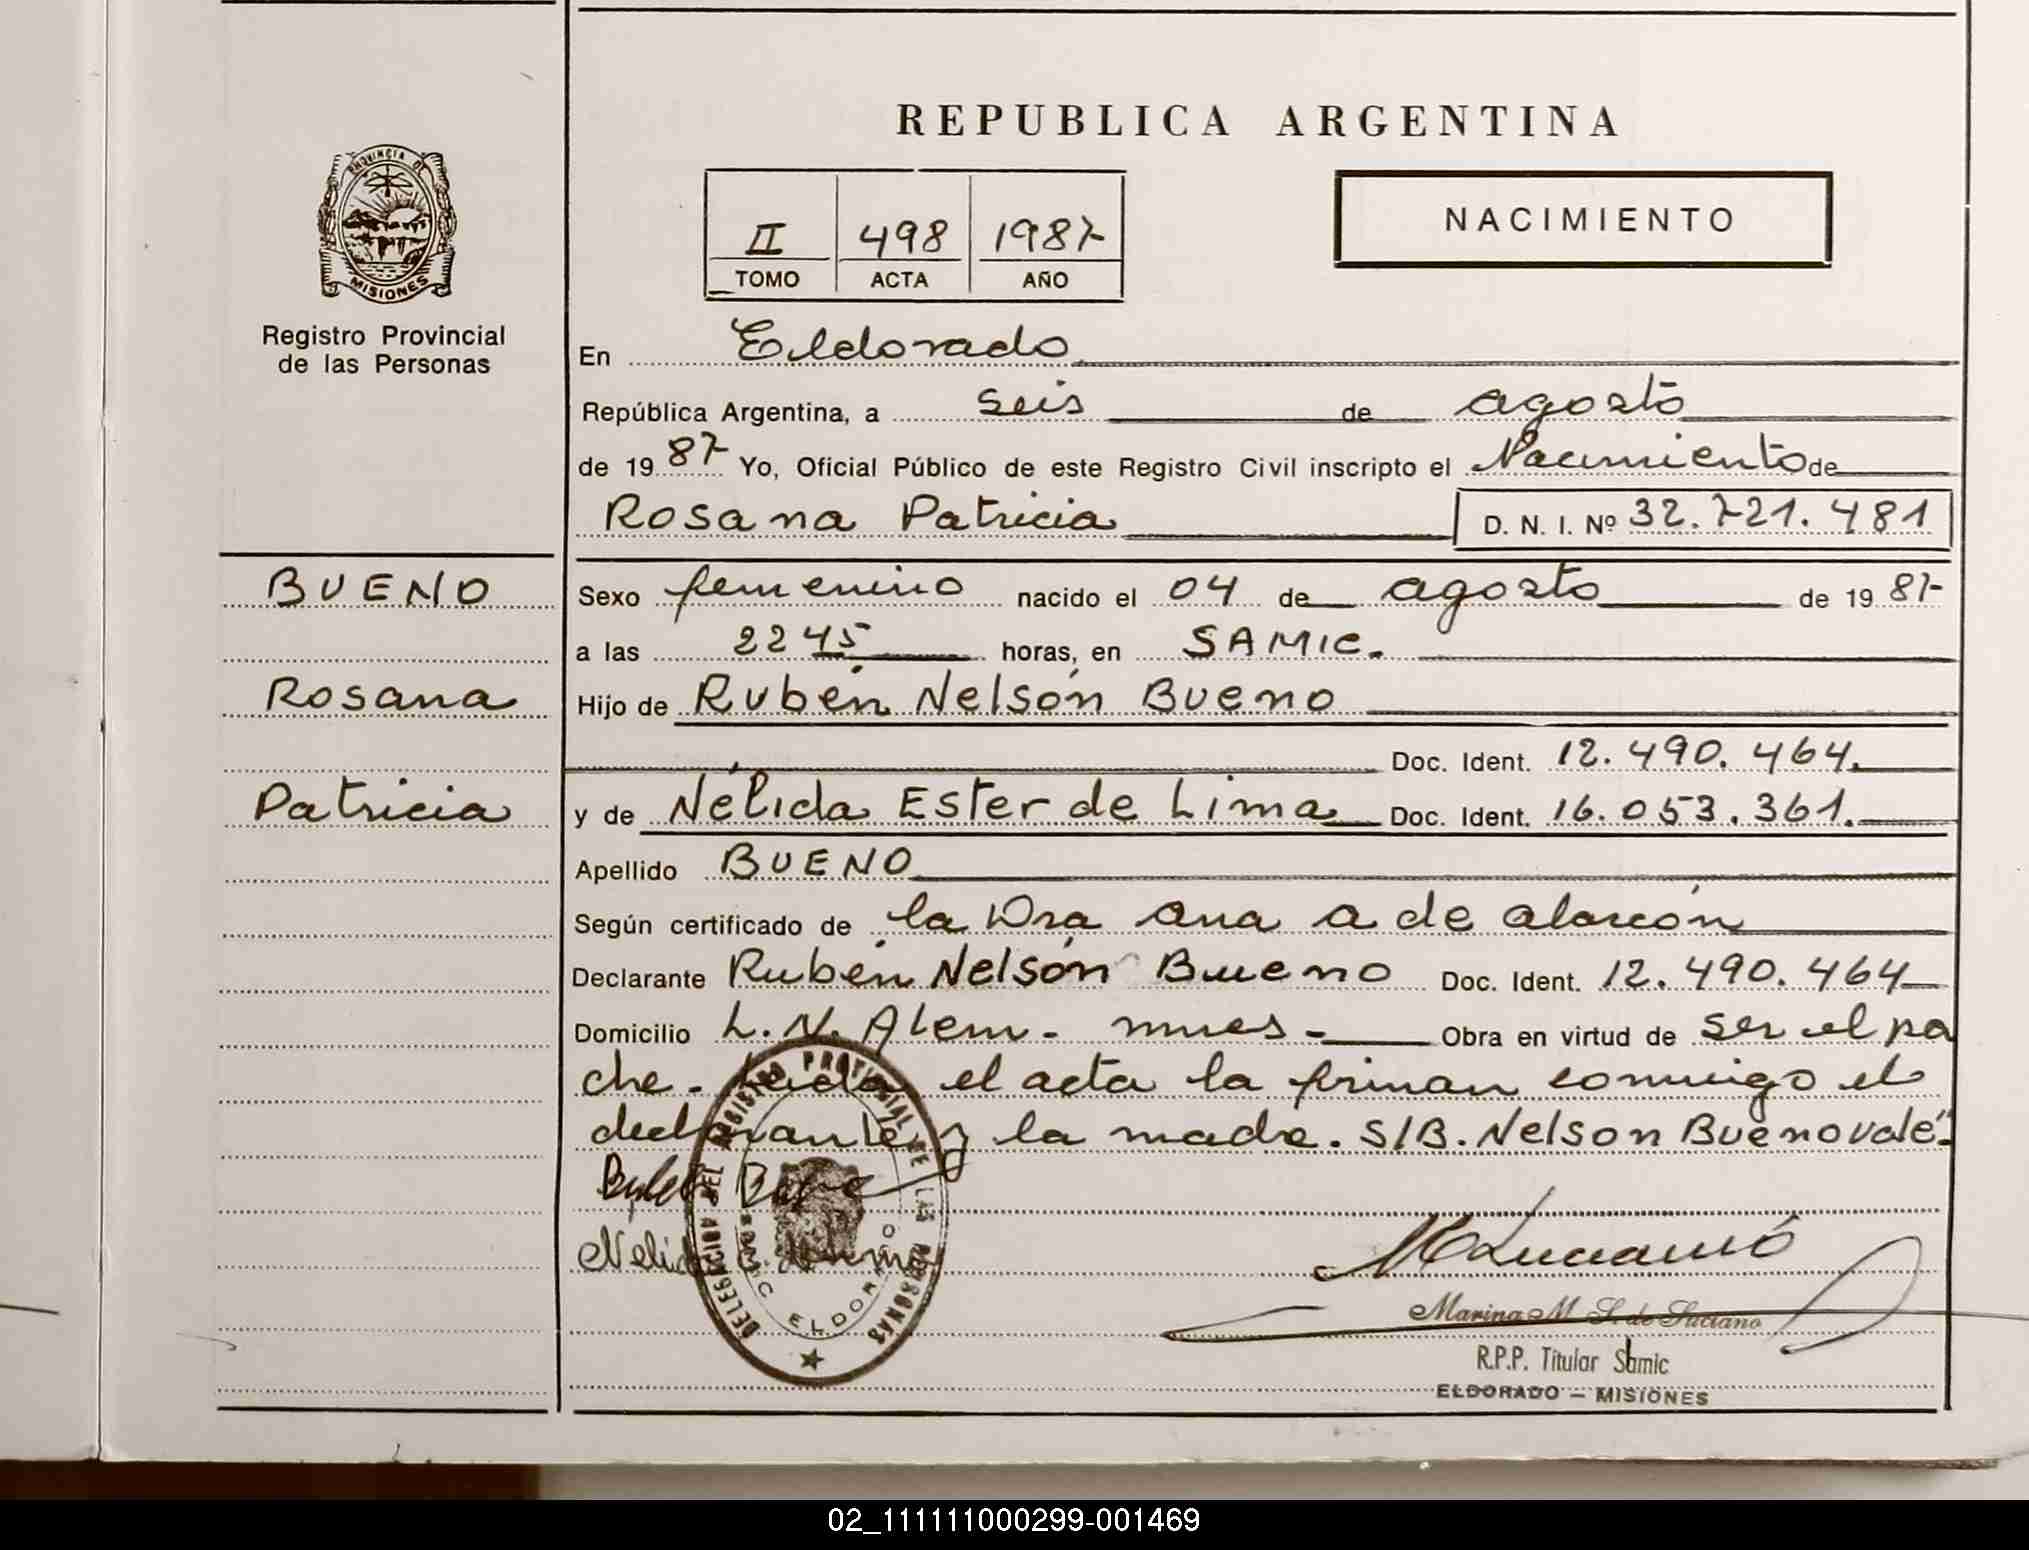 REPUBLICA ARGENTINA
PROVINCIA DE
MISIONES
Registro Provincial
de las Personas
II 498 1987
TOMO ACTA AÑO
NACIMIENTO
En Eldorado
República Argentina, a seis de agosto
de 1987 Yo, Oficial Público de este Registro Civil inscripto el Nacimiento de
Rosana Patricia D. N. I. Nº 32.721.481
BUENO
Rosana
Patricia
Sexo femenino nacido el 04 de agosto de 1987
a las 22 45 horas, en SAMIC.
Hijo de Rubén Nelsón Bueno
Doc. Ident. 12.490.464.
y de Nélida Ester de Lima Doc. Ident. 16.053.361.
Apellido BUENO
Según certificado de la Dra Ana A de Alarcón
Declarante Rubén Nelsón Bueno Doc. Ident. 12.490.464
Domicilio L.N. Alem - mnes - Obra en virtud de ser el pa
dre. Leída el acta la firman conmigo el
declarante y la madre. S/B. Nelson Bueno vale.
Nelida
DELEGACION DEL REGISTRO PROVINCIAL DE LAS PERSONAS
SAMIC ELDORADO
MLuciano
Marina M. S. de Luciano
R.P.P. Titular Samic
ELDORADO – MISIONES
02_111111000299-001469